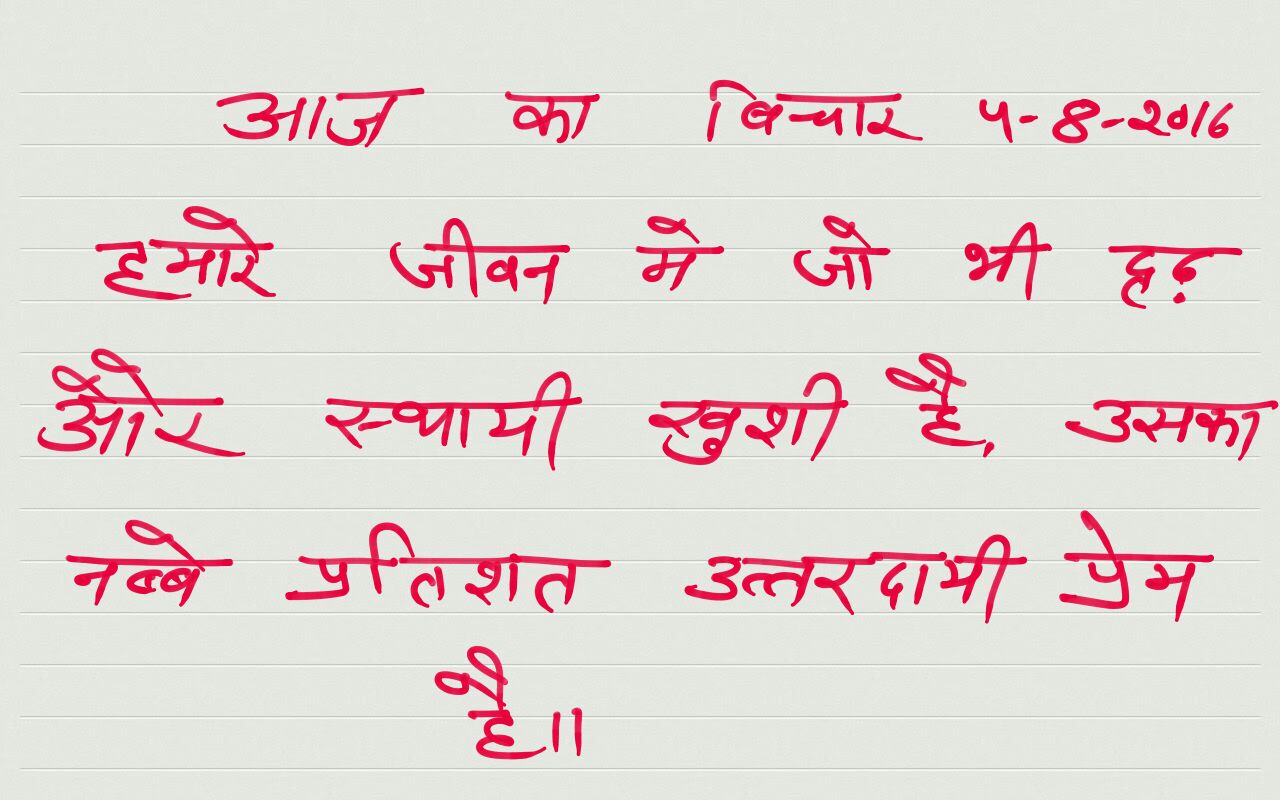 आज का विचार 5-8-2016
हमारे जीवन मे जो भी दृढ़
और स्थायी खुशी है, उसका
नब्बे प्रतिशत उत्तरदायी प्रेम
है॥